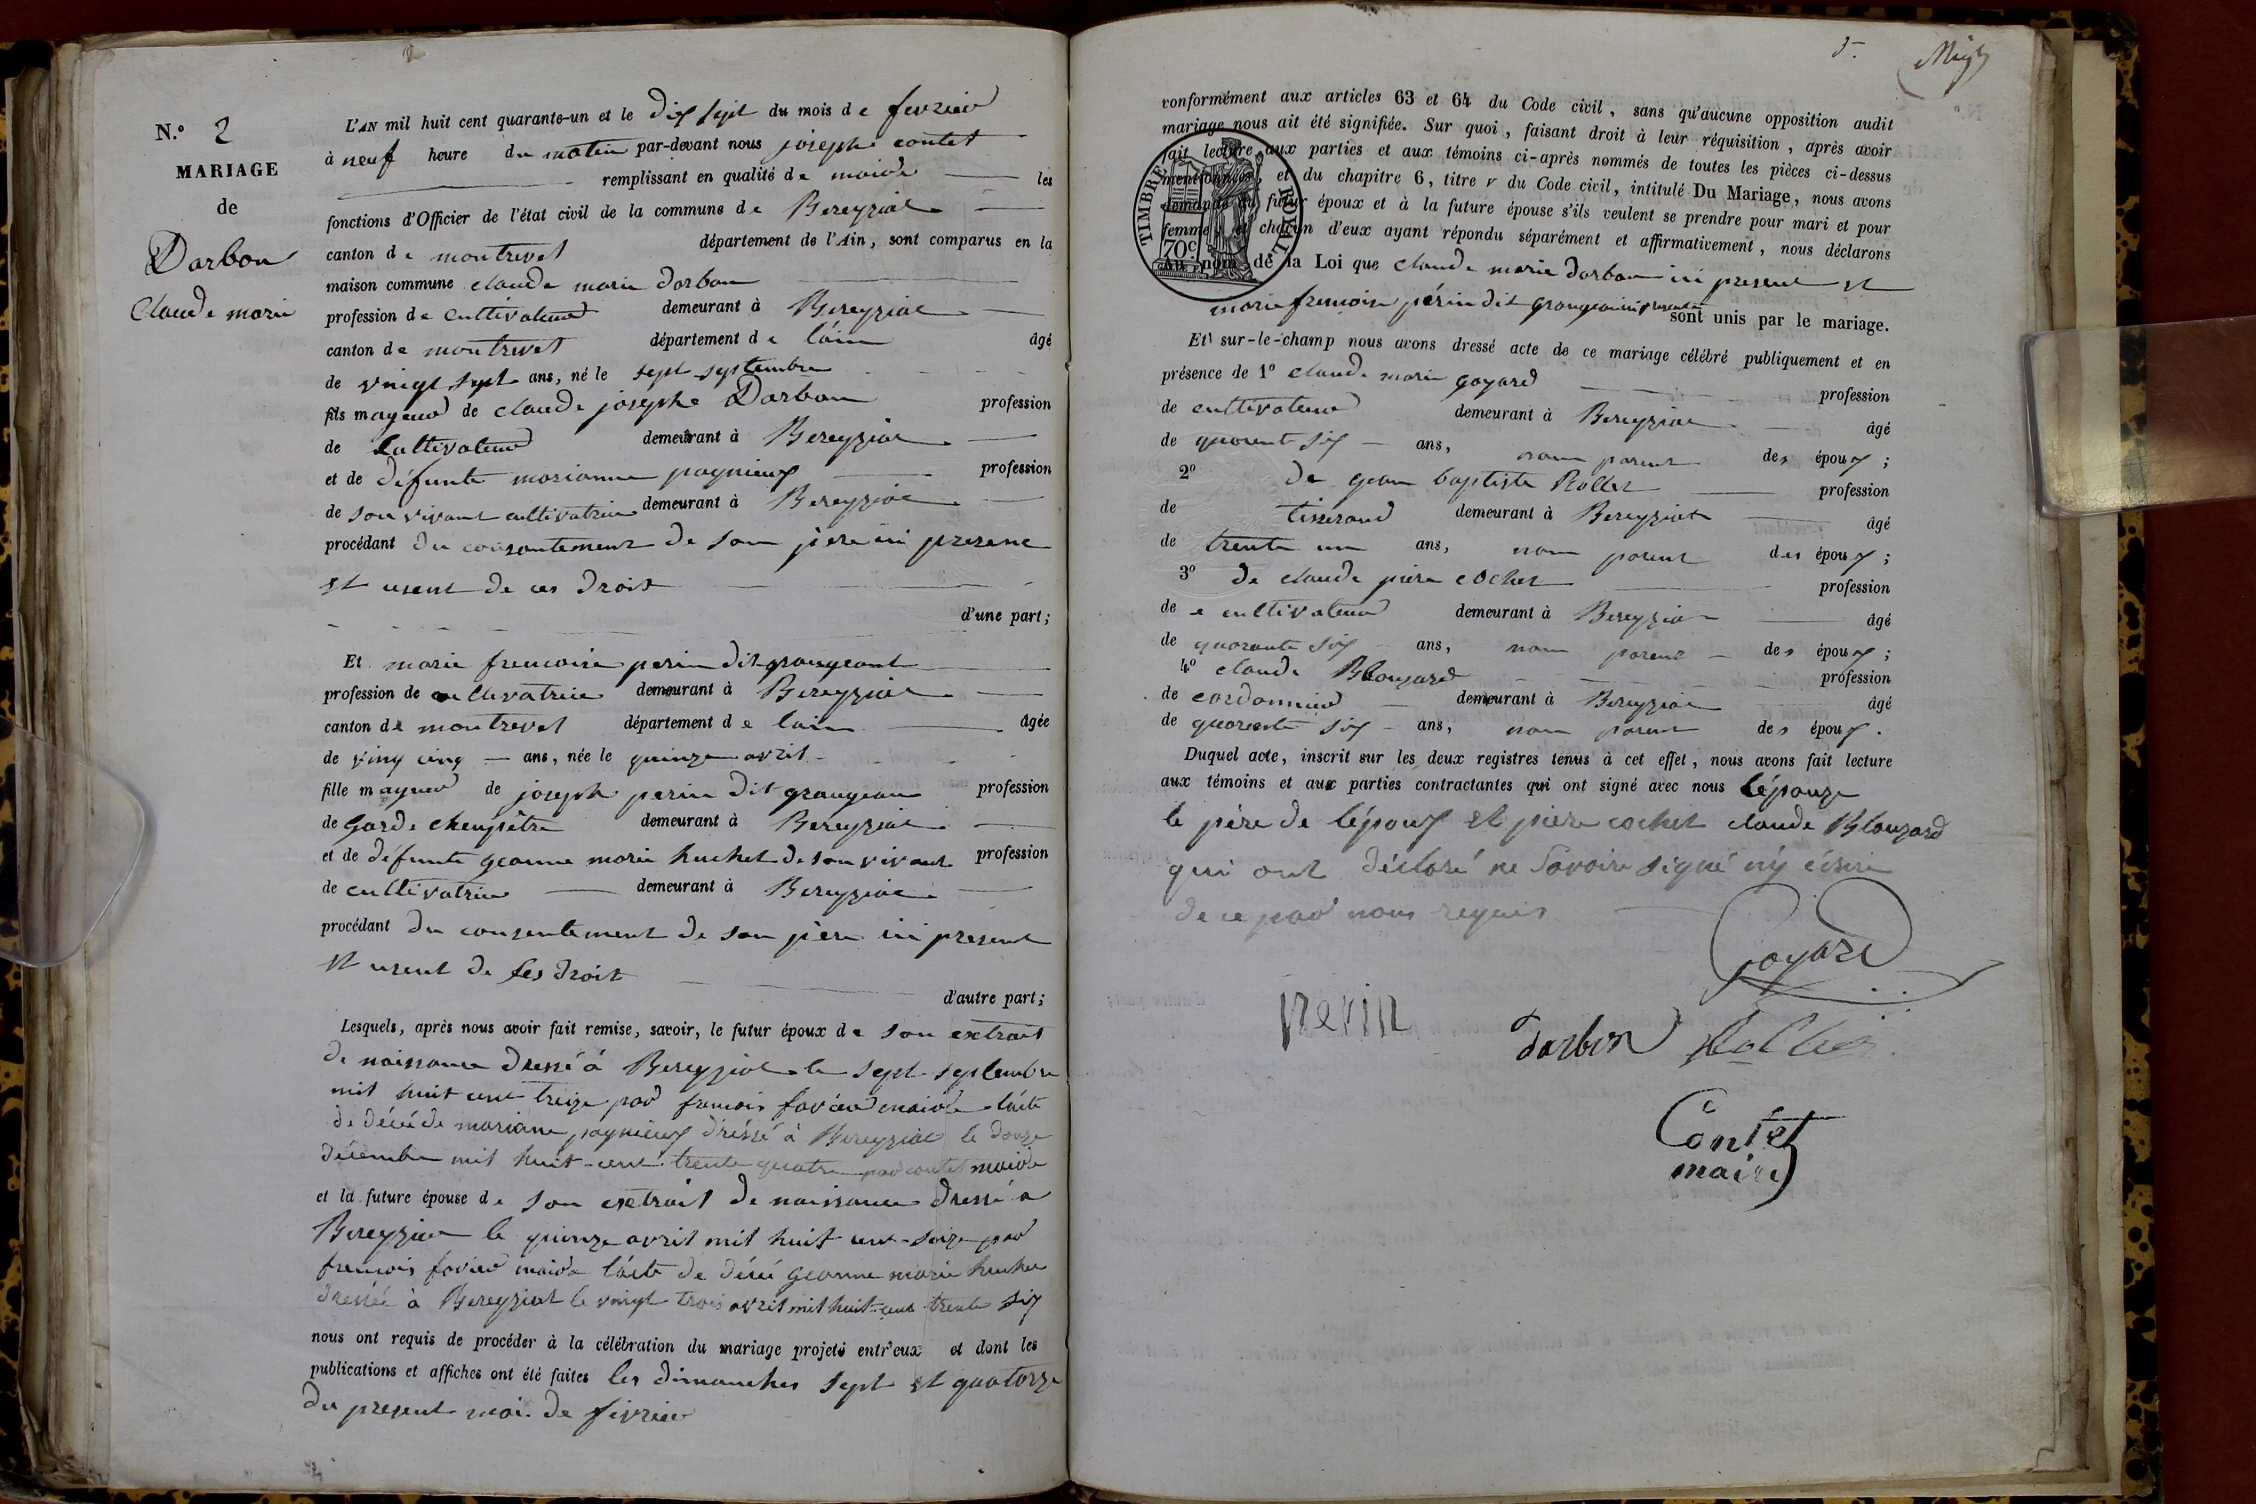 N.º 2
MARIAGE
de
Darbon
Claude marie
L'AN mil huit cent quarante-un et le dix sept du mois de fevrier
à neuf heure du matin par-devant nous joseph contet
remplissant en qualité de maire les
fonctions d'Officier de l'état civil de la commune de Bereyziat
canton de montrevet département de l'Ain, sont comparus en la
maison commune claude marie darbon
profession de cultivateur demeurant à Bereyziat
canton de montrevet département de l'ain âgé
de vingt sept ans, né le sept septembre
fils mageur de claude joseph Darbon profession
de Cultivateur demeurant à Bereyziat
et de défunte marianne pagnieux profession
de son vivant cultivatrice demeurant à Bereyziat
procédant du consantement de son père ici present
et usent de ces droit
d'une part;
Et marie francoise perin dit grangeant
profession de cultivatrice demeurant à Bereyziat
canton de montrevet département de lain âgée
de ving cinq ans, née le quinze avril
fille mageur de joseph perin dit grangean profession
de Garde chempêtre demeurant à Bereyziat
et de défunte geanne marie huchet de son vivant profession
de cultivatrice demeurant à Bereyziat
procédant du consentement de son père ici present
et usent de ses droit
d'autre part;
Lesquels, après nous avoir fait remise, savoir, le futur époux de son extrait
de naissance dressé à Bereyziat le sept septembre
mil huit cent treize par francois favier maire lácte
de décé de mariane pagnieux dréssé à Bereyziat le douze
décembre mil huit cent trente quatre par contet maire
et la future épouse de son extrait de naissance dressé a
Bereyziat le quinze avril mil huit cent seize par
francois favier maire lácte de décé geanne marie huchet
dressée à Bereyziat le vingt trois avril mil huit cent trente six
nous ont requis de procéder à la célébration du mariage projeté entr'eux et dont les
publications et affiches ont été faites les dimanches sept et quatorze
du present moi de fevrier
3
conformément aux articles 63 et 64 du Code civil, sans qu'aucune opposition audit
mariage nous ait été signifiée. Sur quoi, faisant droit à leur réquisition, après avoir
fait lecture aux parties et aux témoins ci-après nommés de toutes les pièces ci-dessus
mentionnées, et du chapitre 6, titre v du Code civil, intitulé Du Mariage, nous avons
demandé au futur époux et à la future épouse s'ils veulent se prendre pour mari et pour
femme et chacun d'eux ayant répondu séparément et affirmativement, nous déclarons
au nom de la Loi que claude marie darbon ici present et
marie francoise périn dit grangean ici presente sont unis par le mariage.
TIMBRE ROYAL
70c
Et sur-le-champ nous avons dressé acte de ce mariage célébré publiquement et en
présence de 1º claude marie goyard profession
de cultivateur demeurant à Bereyziat âgé
de quarent six ans, nom parent des époux;
2º de gean baptiste Rollet profession
de tisserand demeurant à Bereyziat âgé
de trente un ans, nom parent des époux;
3º de claude piere cochet profession
de cultivateur demeurant à Bereyziat âgé
de quarante six ans, nom parent des époux;
4º claude Blouzard profession
de cordonnier demeurant à Bereyziat âgé
de quarente six ans, nom parent des époux.
Duquel acte, inscrit sur les deux registres tenus à cet effet, nous avons fait lecture
aux témoins et aux parties contractantes qui ont signé avec nous lépouze
le père de lépoux et piere cochet claude Blouzard
qui ont déclaré ne savoire signé ny écrire
de ce par nous requis
Goyard
perin
darbon Rollet
Contet
maire